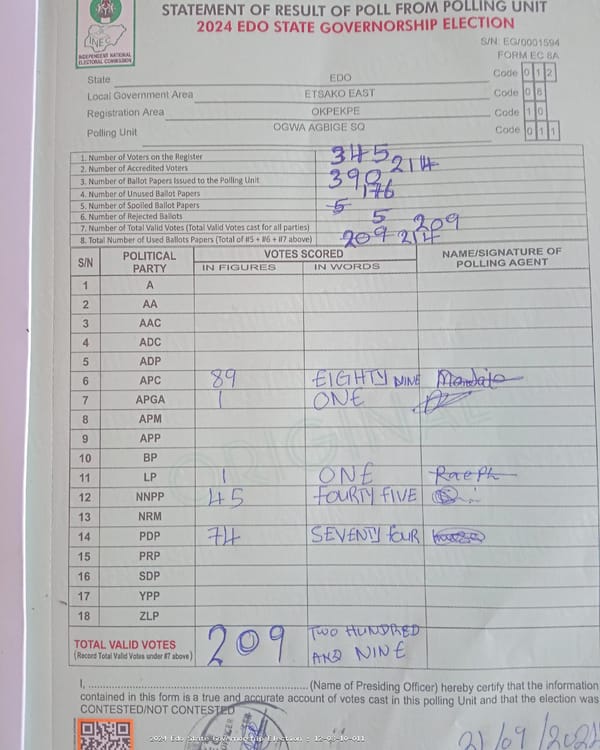 STATEMENT OF RESULT OF POLL FROM POLLING UNIT
2024 EDO STATE GOVERNORSHIP ELECTION
INEC
INDEPENDENT NATIONAL
ELECTORAL COMMISSION
S/N: EG/0001594
FORM EC 8A
State EDO Code 0 1 2
Local Government Area ETSAKO EAST Code 0 8
Registration Area OKPEKPE Code 1 0
Polling Unit OGWA AGBIGE SQ Code 0 1 1
1. Number of Voters on the Register 345
2. Number of Accredited Voters 214
3. Number of Ballot Papers Issued to the Polling Unit 390
4. Number of Unused Ballot Papers 176
5. Number of Spoiled Ballot Papers 5
6. Number of Rejected Ballots 5
7. Number of Total Valid Votes (Total Valid Votes cast for all parties) 209
8. Total Number of Used Ballots Papers (Total of #5 + #6 + #7 above) 209 214
S/N POLITICAL PARTY VOTES SCORED NAME/SIGNATURE OF POLLING AGENT
IN FIGURES IN WORDS
1 A
2 AA
3 AAC
4 ADC
5 ADP
6 APC 89 EIGHTY NINE
7 APGA 1 ONE
8 APM
9 APP
10 BP
11 LP 1 ONE
12 NNPP 45 FOURTY FIVE
13 NRM
14 PDP 74 SEVENTY FOUR
15 PRP
16 SDP
17 YPP
18 ZLP
ORIGINAL
TOTAL VALID VOTES 209 TWO HUNDRED
(Record Total Valid Votes under #7 above) AND NINE
I, ............................................................(Name of Presiding Officer) hereby certify that the information
contained in this form is a true and accurate account of votes cast in this polling Unit and that the election was
CONTESTED/NOT CONTESTED
2024 Edo State Governorship Election - 12-08-10-011